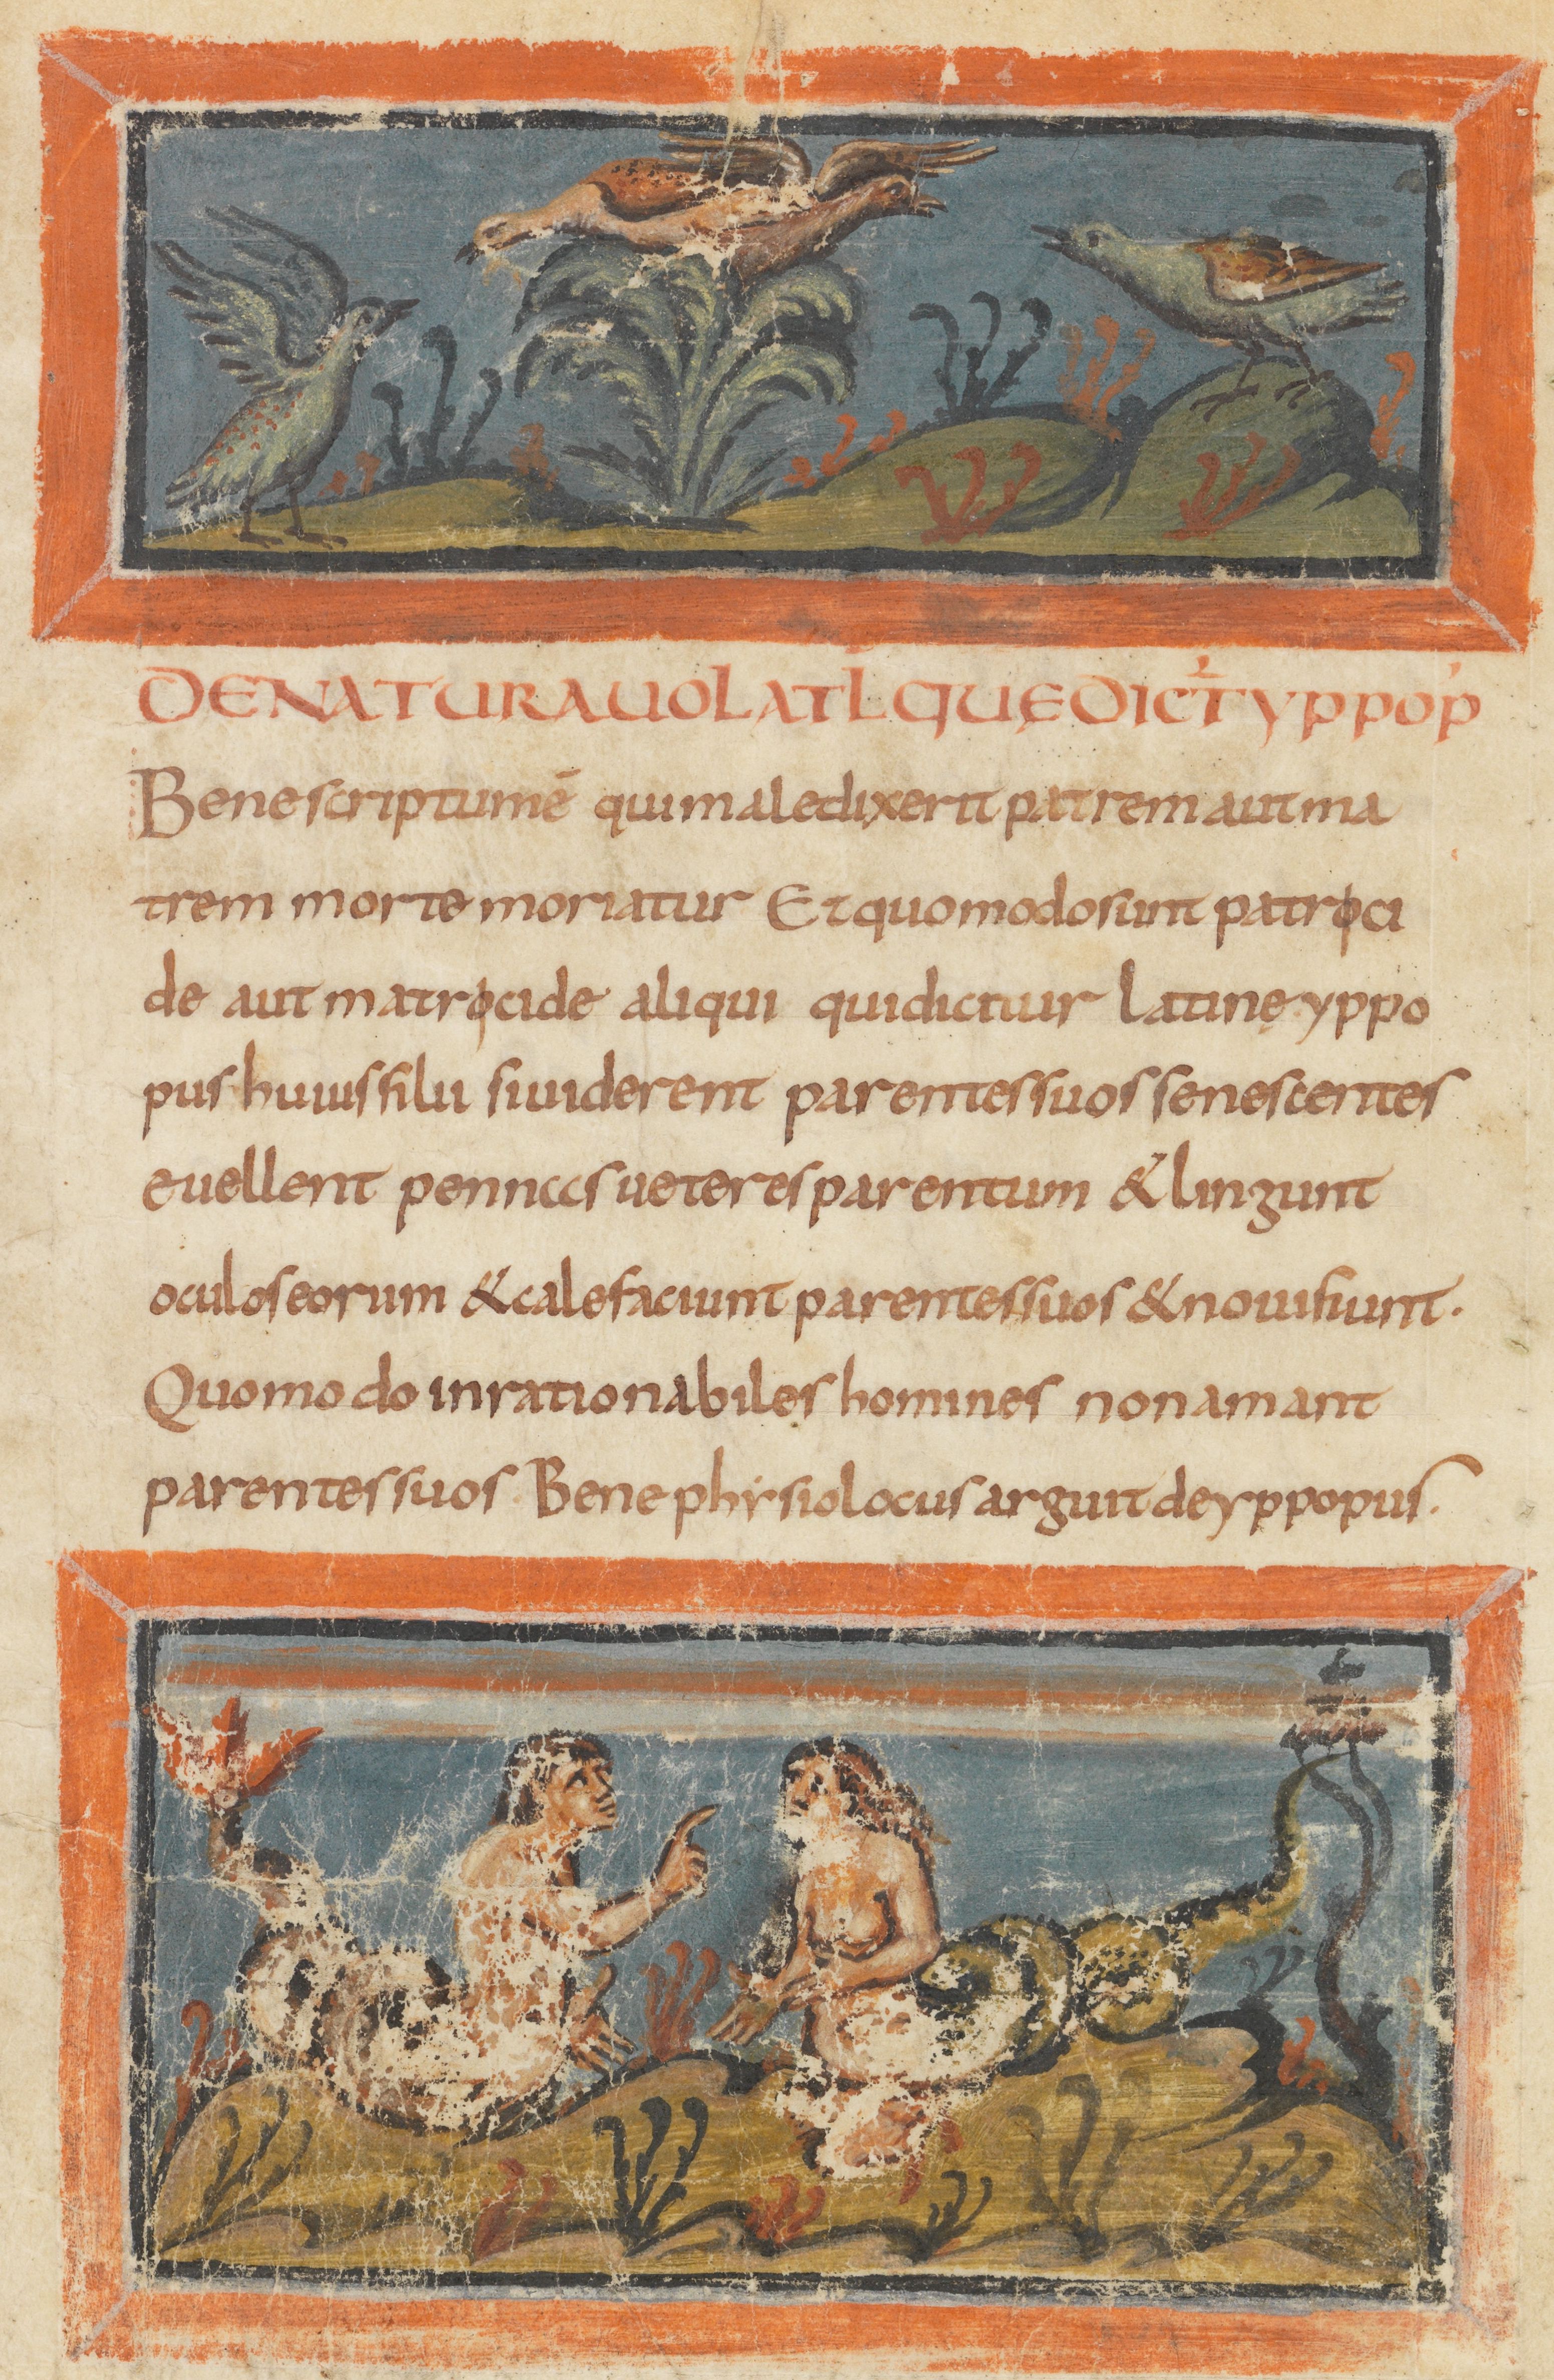 DE NATURA UOLATL QUĘ DICT̄ YPPOP
Bene scriptum ē qui maledixerit patrem aut ma
trem morte moriatur Et quomodo sunt patrici
de aut matricide aliqui qui dicitur latinę yppo
pus huius filii si uiderent parentes suos senescentes
euellent pennas ueteres parentum & lingunt
oculos eorum & calefaciunt parentes suos & noui fiunt.
Quomodo inrationabiles homines non amant
parentes suos Bene phisiolocus arguit de yppopus.